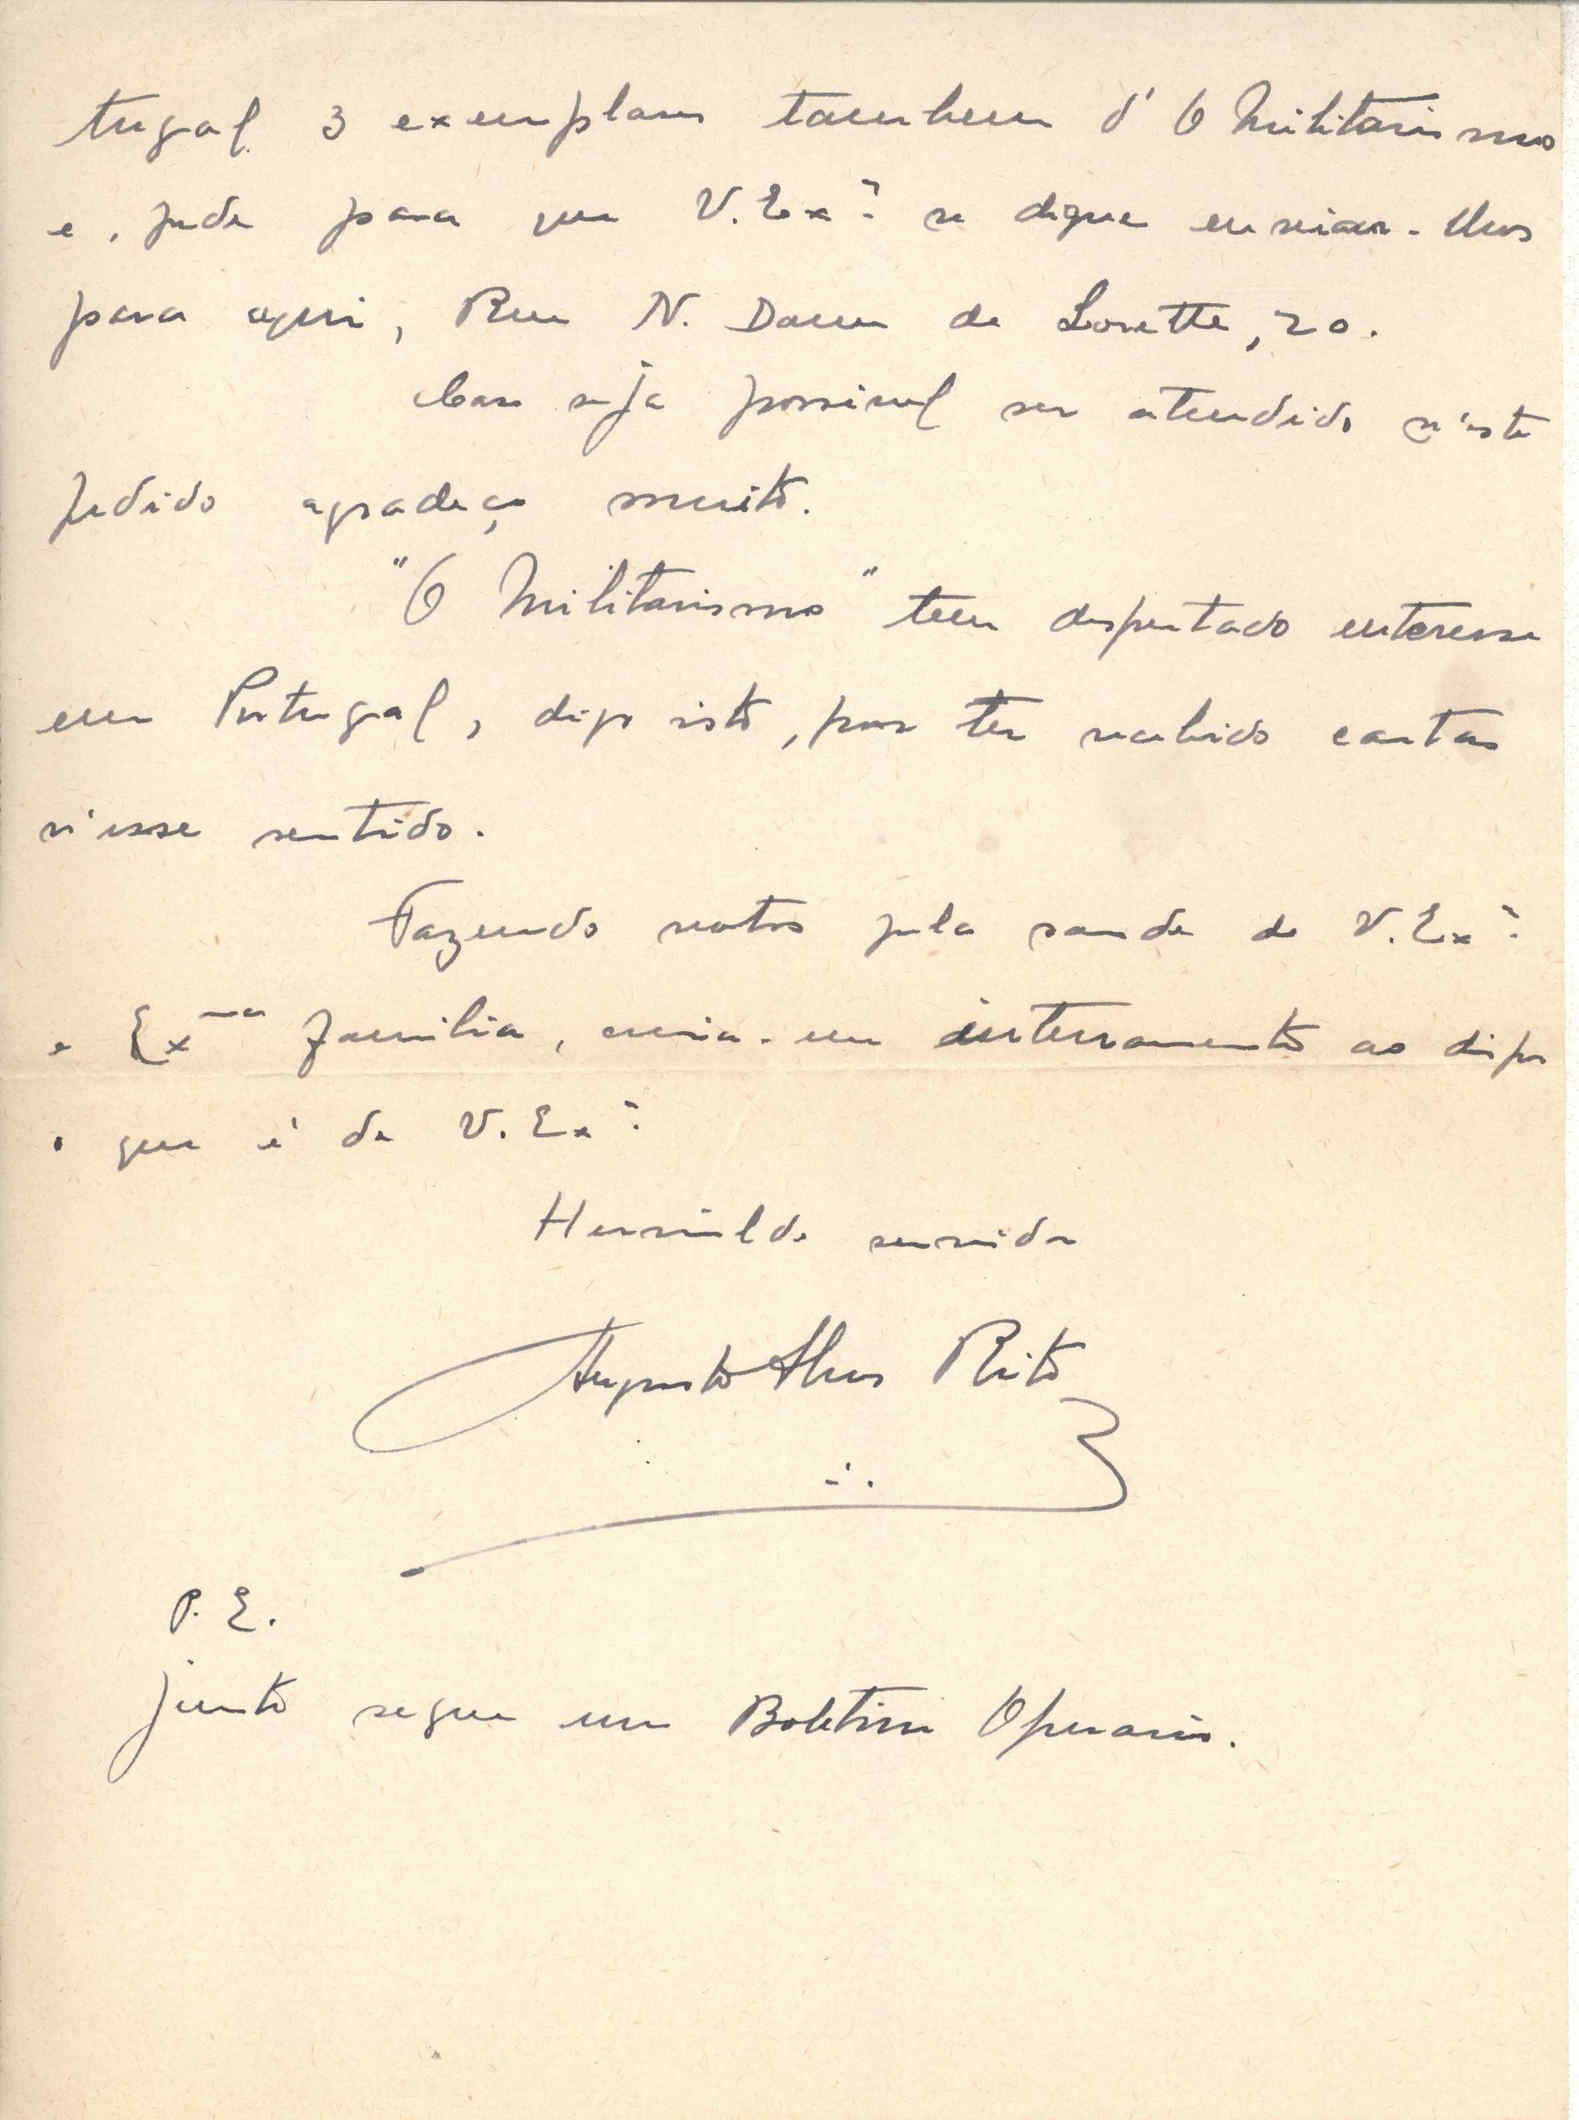 tugal 3 exemplares tambem d'O Militarismo
e, pede para que V. Exª se digne enviar-lhos
para aqui, Rue N. Dame de Lorette, 20.
Caso seja possivel ser atendido n'este
pedido agradeço muito.
"O Militarismo" tem despertado interesse
em Portugal, digo isto, por ter recebido cartas
n'esse sentido.
Fazendo votos pela saude de V. Exª
e Exma familia, envia-me inteiramente ao dispor
o que é de V. Exª
Humilde servidor
Augusto Alves Rito
P. E.
Junto segue um Boletim Operario.